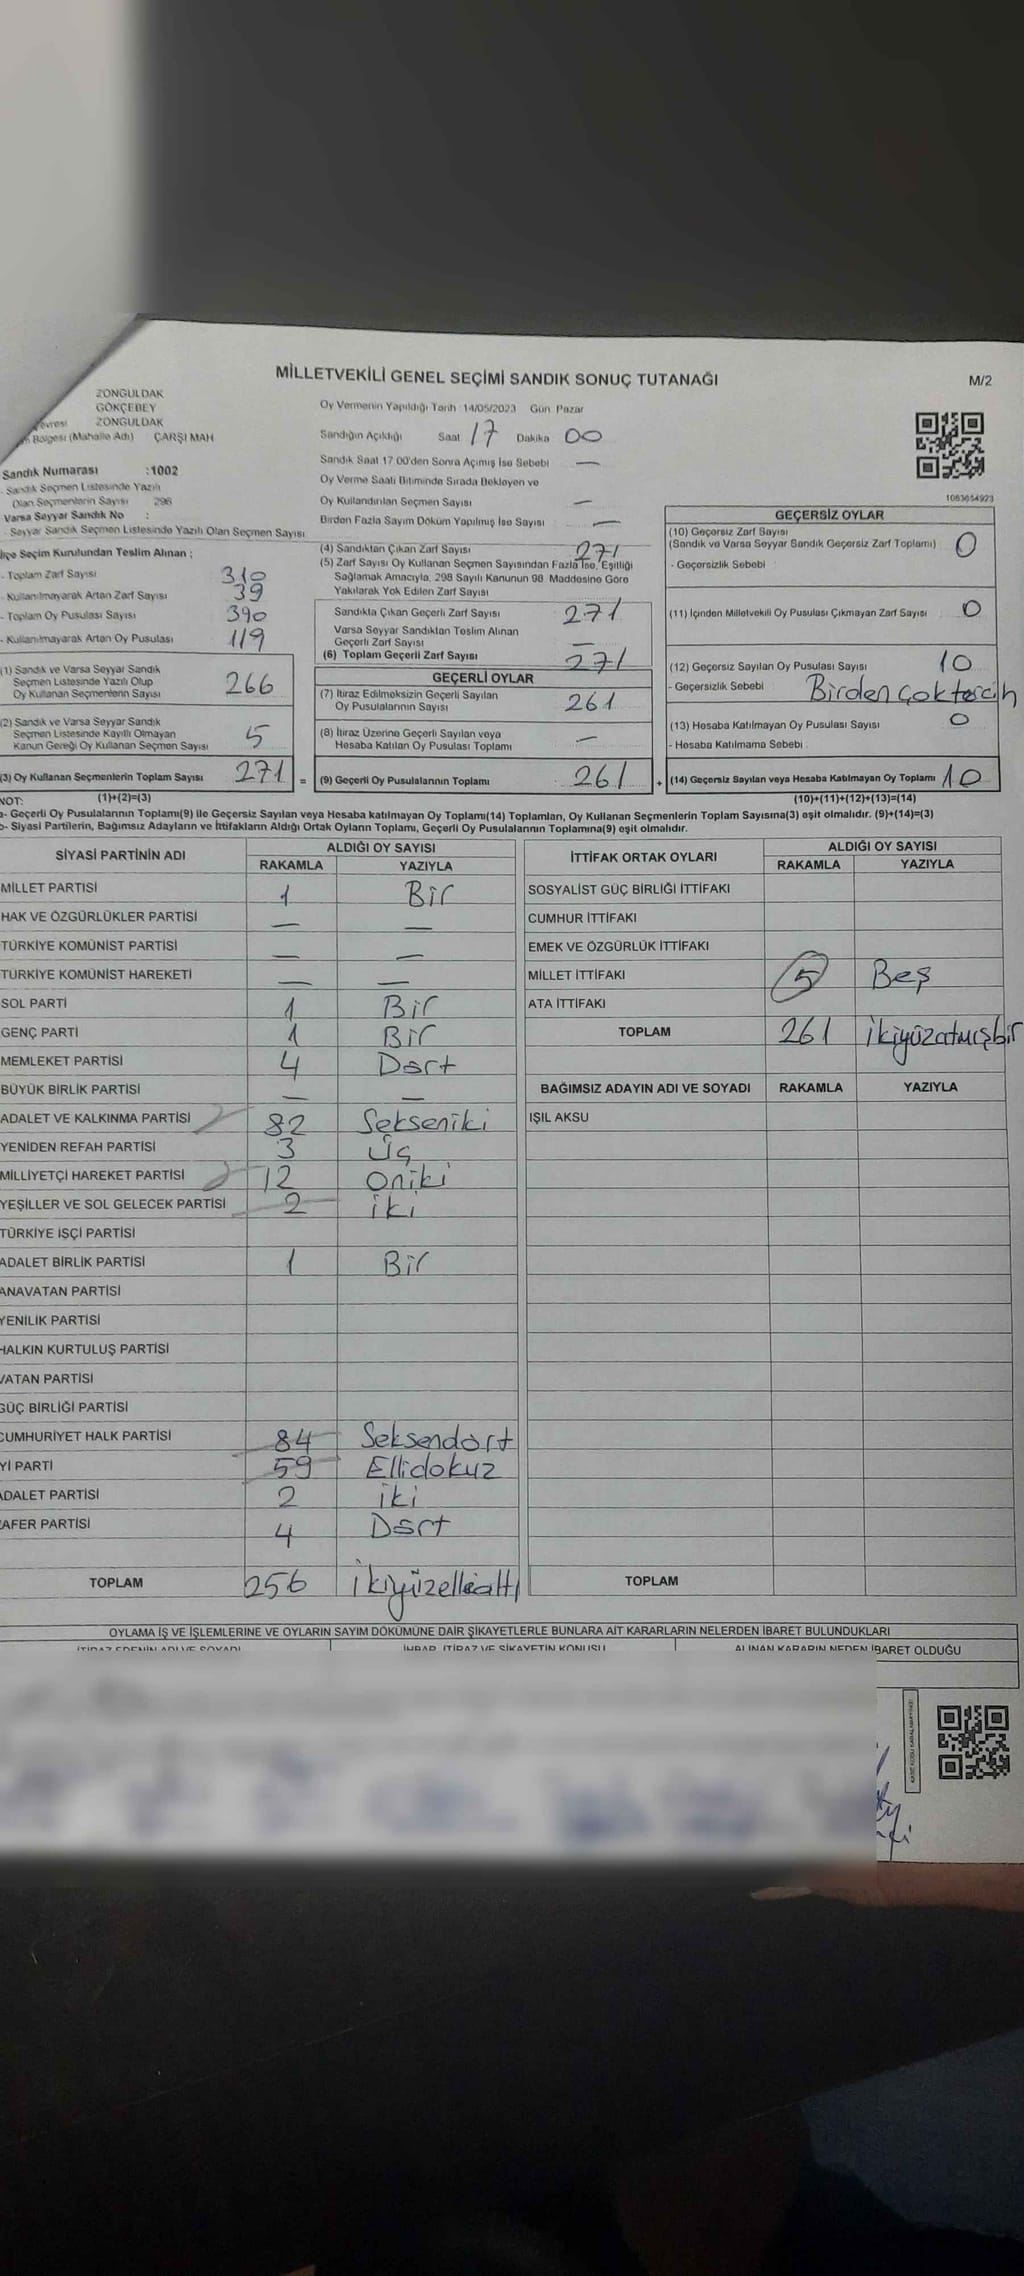 MİLLETVEKİLİ GENEL SEÇİMİ SANDIK SONUÇ TUTANAĞI
M/2
ZONGULDAK
GÖKÇEBEY
Çevresi ZONGULDAK
Bölgesi (Mahalle Adı) ÇARŞI MAH
Sandık Numarası :1002
- Sandık Seçmen Listesinde Yazılı
Olan Seçmenlerin Sayısı 296
Varsa Seyyar Sandık No :
- Seyyar Sandık Seçmen Listesinde Yazılı Olan Seçmen Sayısı
İlçe Seçim Kurulundan Teslim Alınan ;
- Toplam Zarf Sayısı 310
- Kullanılmayarak Artan Zarf Sayısı 39
- Toplam Oy Pusulası Sayısı 390
- Kullanılmayarak Artan Oy Pusulası 119
(1) Sandık ve Varsa Seyyar Sandık
Seçmen Listesinde Yazılı Olup
Oy Kullanan Seçmenlerin Sayısı 266
(2) Sandık ve Varsa Seyyar Sandık
Seçmen Listesinde Kayıtlı Olmayan
Kanun Gereği Oy Kullanan Seçmen Sayısı 5
(3) Oy Kullanan Seçmenlerin Toplam Sayısı 271 =
(1)+(2)=(3)
Oy Vermenin Yapıldığı Tarih :14/05/2023 Gün Pazar
Sandığın Açıldığı Saat 17 Dakika 00
Sandık Saat 17:00'den Sonra Açımış İse Sebebi —
Oy Verme Saati Bitiminde Sırada Bekleyen ve
Oy Kullandırılan Seçmen Sayısı —
Birden Fazla Sayım Döküm Yapılmış İse Sayısı —
(4) Sandıktan Çıkan Zarf Sayısı 271
(5) Zarf Sayısı Oy Kullanan Seçmen Sayısından Fazla İse, Eşitliği
Sağlamak Amacıyla, 298 Sayılı Kanunun 98. Maddesine Göre
Yakılarak Yok Edilen Zarf Sayısı
Sandıkta Çıkan Geçerli Zarf Sayısı 271
Varsa Seyyar Sandıktan Teslim Alınan
Geçerli Zarf Sayısı —
(6) Toplam Geçerli Zarf Sayısı 271
GEÇERLİ OYLAR
(7) İtiraz Edilmeksizin Geçerli Sayılan
Oy Pusulalarının Sayısı 261
(8) İtiraz Üzerine Geçerli Sayılan veya
Hesaba Katılan Oy Pusulası Toplamı —
(9) Geçerli Oy Pusulalarının Toplamı 261 +
1083654923
GEÇERSİZ OYLAR
(10) Geçersiz Zarf Sayısı
(Sandık ve Varsa Seyyar Sandık Geçersiz Zarf Toplamı) 0
- Geçersizlik Sebebi
(11) İçinden Milletvekili Oy Pusulası Çıkmayan Zarf Sayısı 0
(12) Geçersiz Sayılan Oy Pusulası Sayısı 10
- Geçersizlik Sebebi Birden çok tercih
(13) Hesaba Katılmayan Oy Pusulası Sayısı 0
- Hesaba Katılmama Sebebi
(14) Geçersiz Sayılan veya Hesaba Katılmayan Oy Toplamı 10
(10)+(11)+(12)+(13)=(14)
NOT:
a- Geçerli Oy Pusulalarının Toplamı(9) ile Geçersiz Sayılan veya Hesaba katılmayan Oy Toplamı(14) Toplamları, Oy Kullanan Seçmenlerin Toplam Sayısına(3) eşit olmalıdır. (9)+(14)=(3)
b- Siyasi Partilerin, Bağımsız Adayların ve İttifakların Aldığı Ortak Oyların Toplamı, Geçerli Oy Pusulalarının Toplamına(9) eşit olmalıdır.
SİYASİ PARTİNİN ADI ALDIĞI OY SAYISI
RAKAMLA YAZIYLA
MİLLET PARTİSİ 1 Bir
HAK VE ÖZGÜRLÜKLER PARTİSİ — —
TÜRKİYE KOMÜNİST PARTİSİ — —
TÜRKİYE KOMÜNİST HAREKETİ — —
SOL PARTİ 1 Bir
GENÇ PARTİ 1 Bir
MEMLEKET PARTİSİ 4 Dört
BÜYÜK BİRLİK PARTİSİ — —
ADALET VE KALKINMA PARTİSİ 82 Sekseniki
YENİDEN REFAH PARTİSİ 3 Üç
MİLLİYETÇİ HAREKET PARTİSİ 12 Oniki
YEŞİLLER VE SOL GELECEK PARTİSİ 2 iki
TÜRKİYE İŞÇİ PARTİSİ
ADALET BİRLİK PARTİSİ 1 Bir
ANAVATAN PARTİSİ
YENİLİK PARTİSİ
HALKIN KURTULUŞ PARTİSİ
VATAN PARTİSİ
GÜÇ BİRLİĞİ PARTİSİ
CUMHURİYET HALK PARTİSİ 84 Seksendört
İYİ PARTİ 59 Ellidokuz
ADALET PARTİSİ 2 iki
ZAFER PARTİSİ 4 Dört
TOPLAM 256 ikiyüzellialtı
İTTİFAK ORTAK OYLARI ALDIĞI OY SAYISI
RAKAMLA YAZIYLA
SOSYALİST GÜÇ BİRLİĞİ İTTİFAKI
CUMHUR İTTİFAKI
EMEK VE ÖZGÜRLÜK İTTİFAKI
MİLLET İTTİFAKI 5 Beş
ATA İTTİFAKI
TOPLAM 261 ikiyüzatmışbir
BAĞIMSIZ ADAYIN ADI VE SOYADI RAKAMLA YAZIYLA
IŞIL AKSU
TOPLAM
OYLAMA İŞ VE İŞLEMLERİNE VE OYLARIN SAYIM DÖKÜMÜNE DAİR ŞİKAYETLERLE BUNLARA AİT KARARLARIN NELERDEN İBARET BULUNDUKLARI
İTİRAZ EDENİN ADI VE SOYADI İHBAR, İTİRAZ VE ŞİKAYETİN KONUSU ALINAN KARARIN NEDEN İBARET OLDUĞU